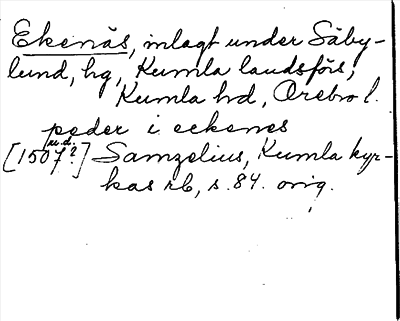 Ekenäs, inlagt under Säby-
lund, hg, Kumla landsförs,
Kumla hd, Örebro l.
peder i eckenes
u.d.
[1507?] Samzelius, Kumla kyr-
kas rb, s. 84. orig.